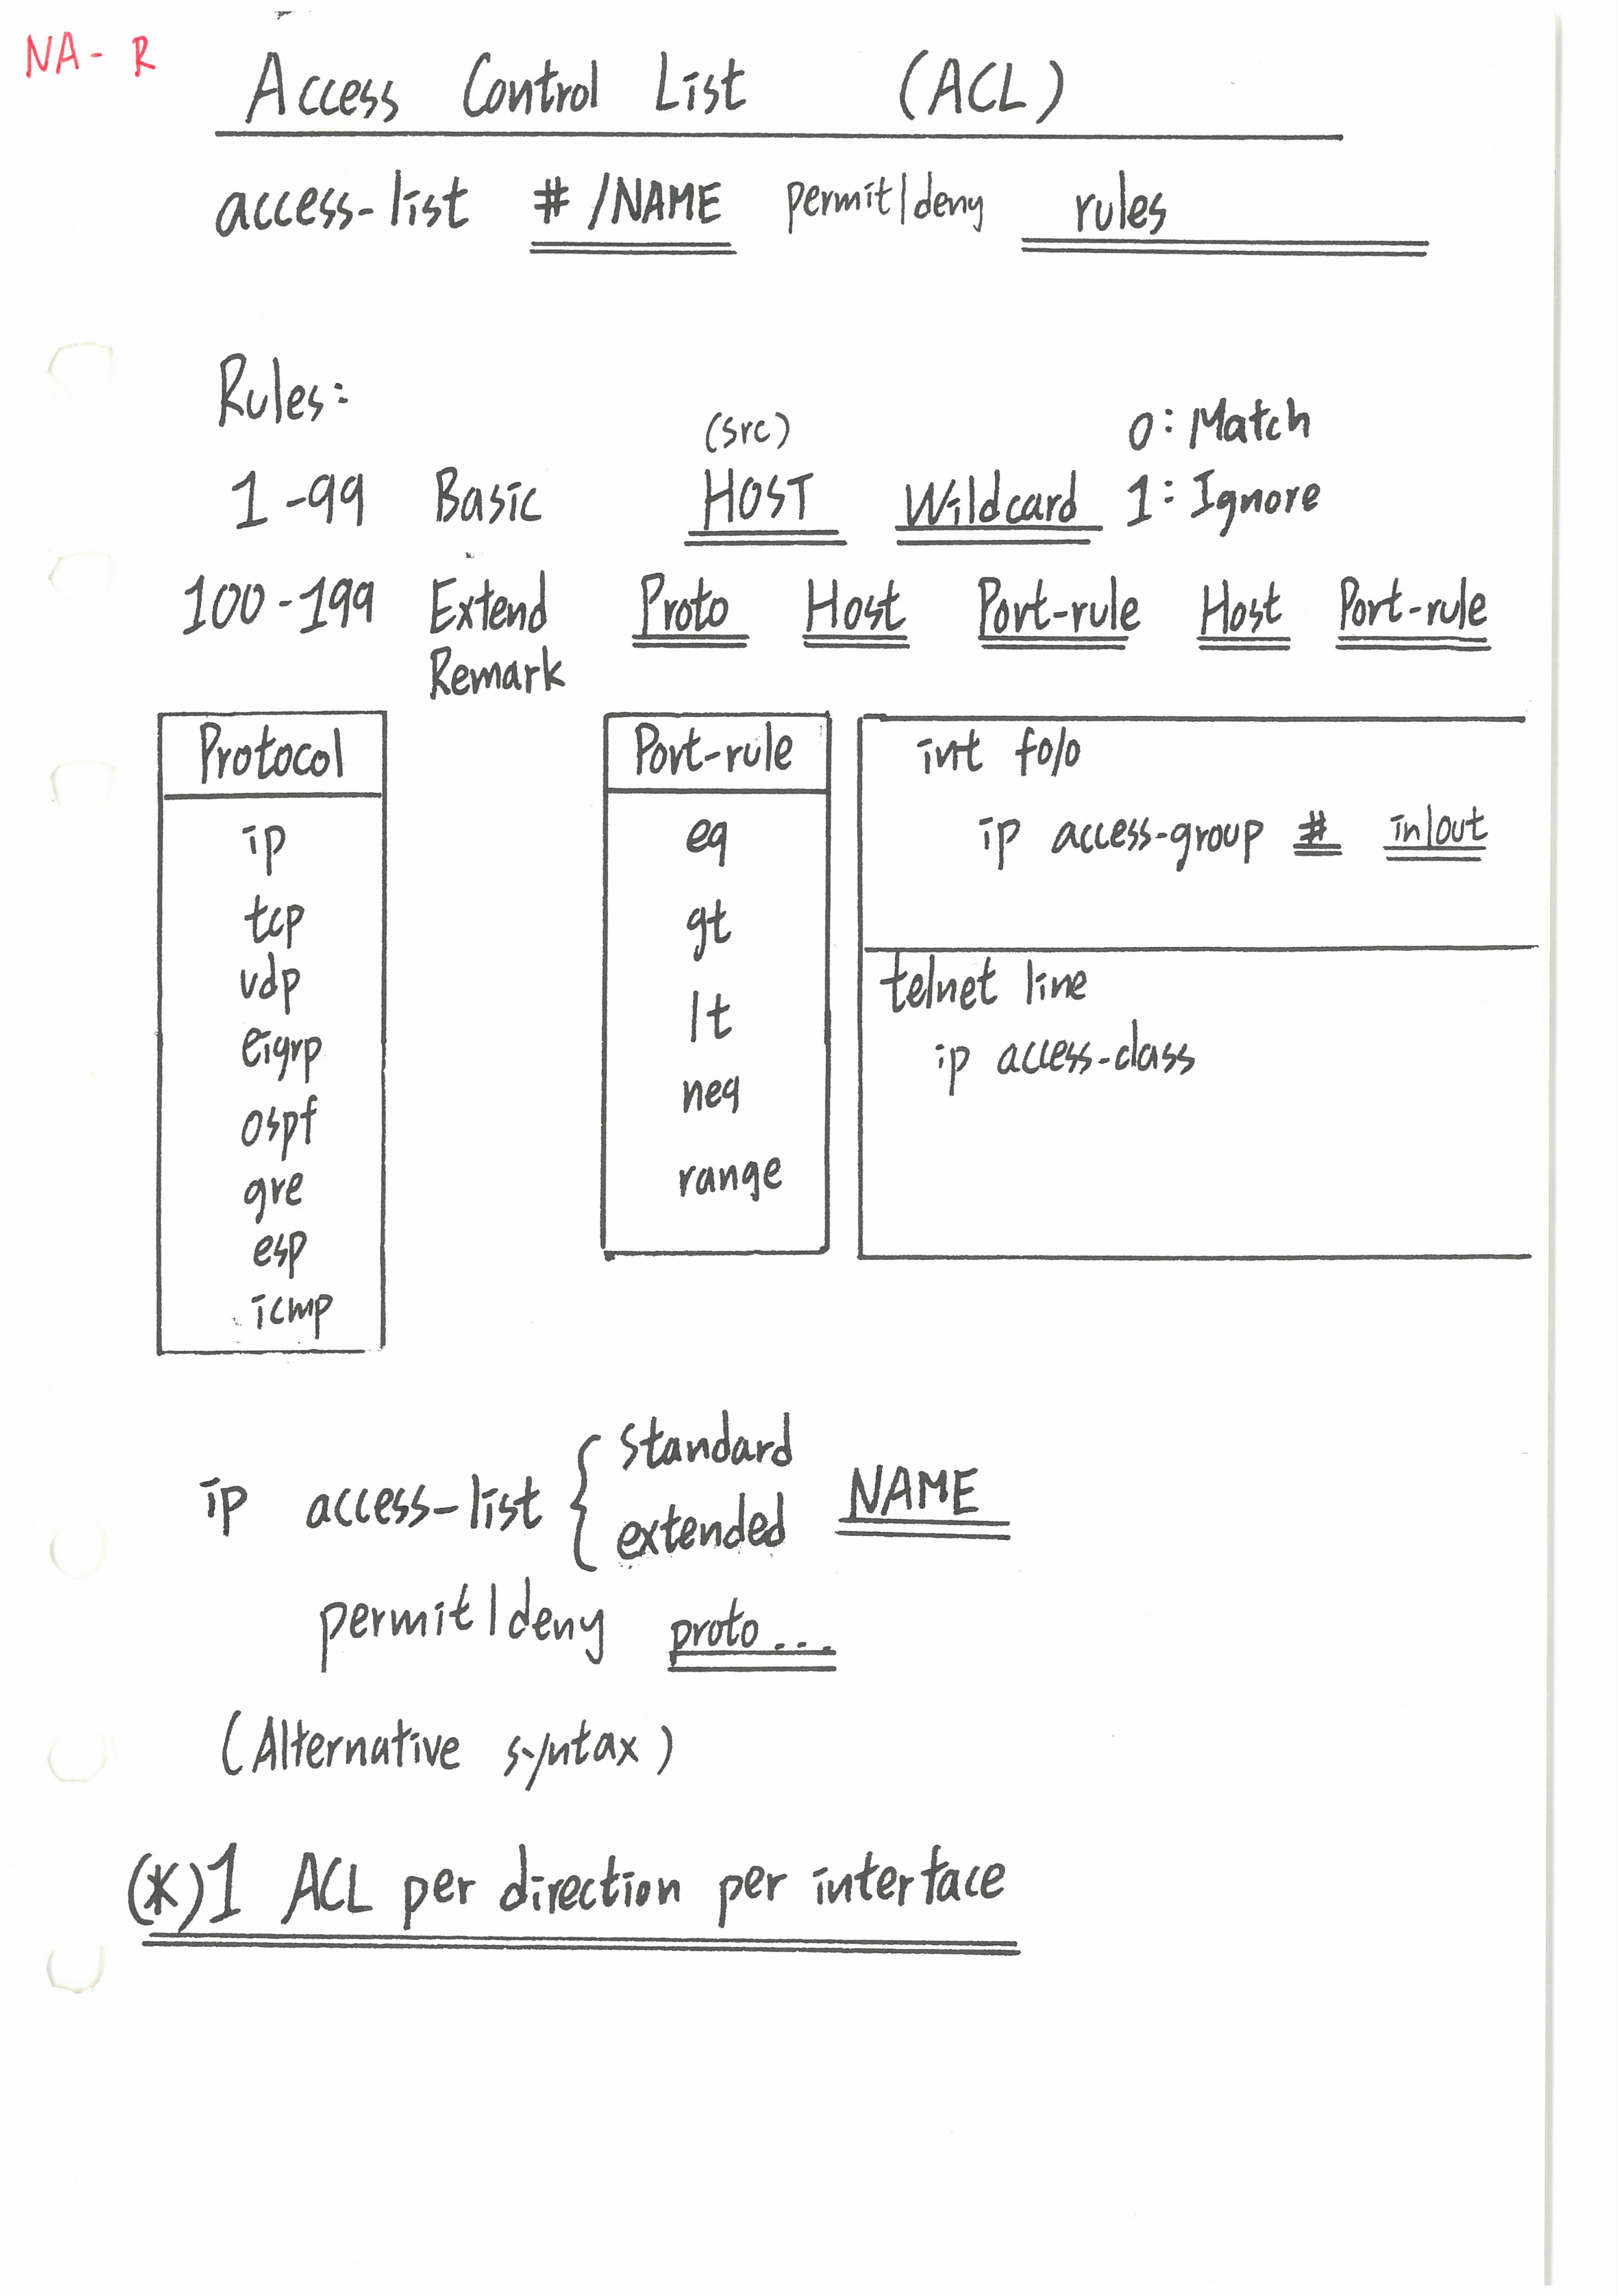 NA- R
Access Control List (ACL)
access-list # /NAME permit/deny rules
Rules:
(src)
0: Match
1-99 Basic HOST Wildcard 1: Ignore
100-199 Extend Proto Host Port-rule Host Port-rule
Remark
Protocol
ip
tcp
udp
eigrp
ospf
gre
esp
icmp
Port-rule
eq
gt
lt
neq
range
int f0/0
ip access-group # in/out
telnet line
ip access-class
ip access-list { standard
extended NAME
permit/deny proto ...
(Alternative syntax)
(*) 1 ACL per direction per interface